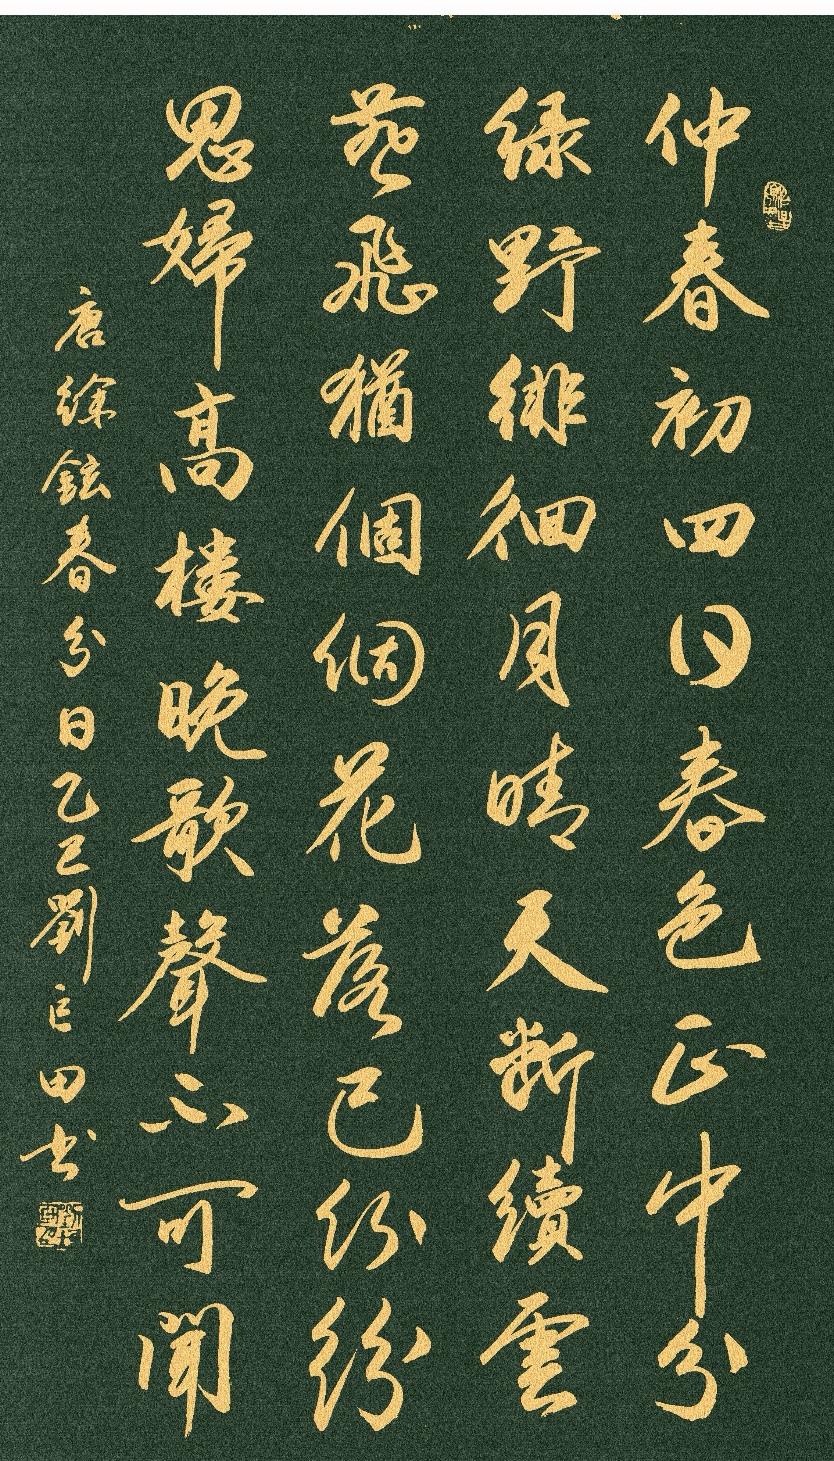 仲春初四日春色正中分
緑野徘徊月晴天断續雲
燕飛猶個個花落已紛紛
思婦高楼晚歌聲不可聞
唐徐鉉春分日乙巳劉巨田书